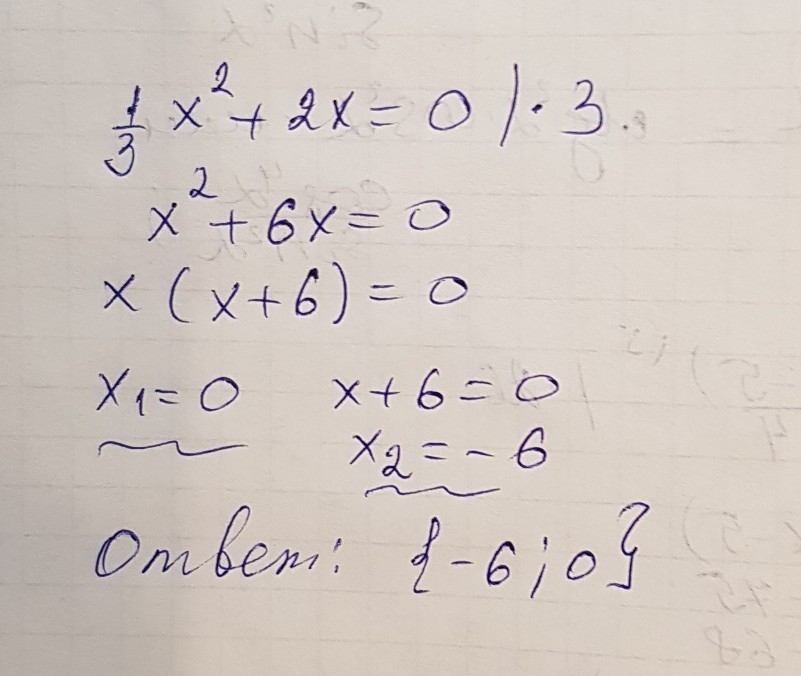 1/3 x² + 2x = 0 | · 3.
x² + 6x = 0
x (x + 6) = 0
x₁ = 0 x + 6 = 0
x₂ = - 6
Ответ: {-6; 0}